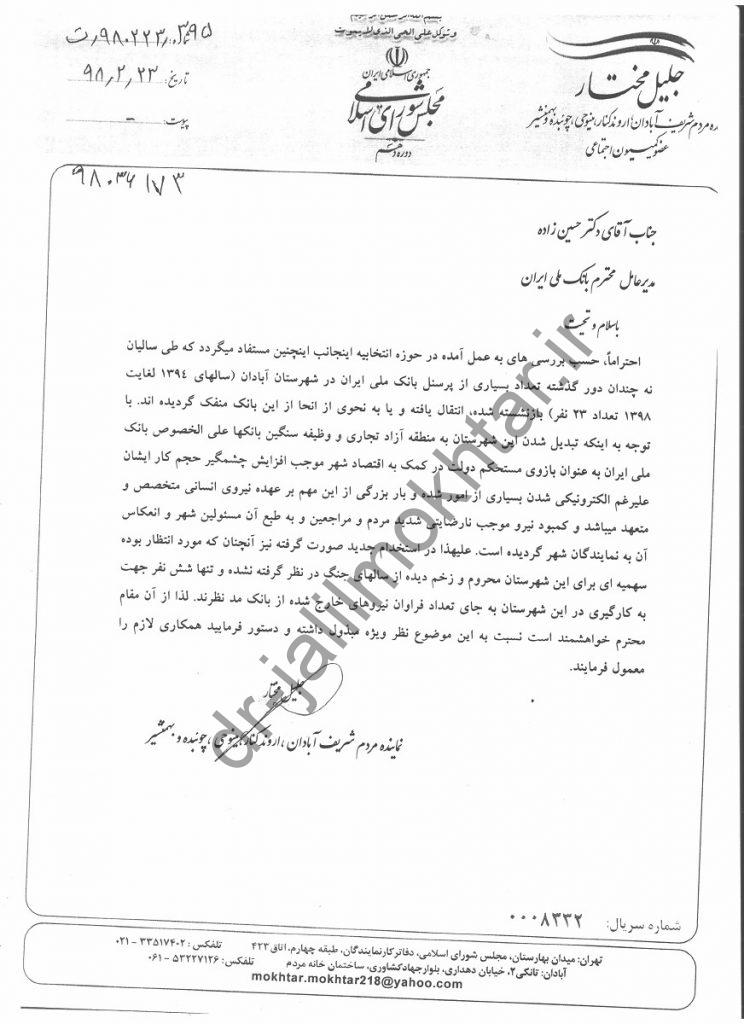 بسم الله الرحمن الرحیم
و توکل علی الحی الذی لا یموت
جمهوری اسلامی ایران
مجلس شورای اسلامی
دوره دهم
جلیل مختار
ده مردم شریف آبادان، اروندکنار، مینوحی، چوئبده و بهمنشیر
عضو کمیسیون اجتماعی
تاریخ: ۹۸،۲،۲۳
پیوست: -
جناب آقای دکتر حسین زاده
مدیرعامل محترم بانک ملی ایران
باسلام و تحیت
احتراماً، حسب بررسی های به عمل آمده در حوزه انتخابیه اینجانب اینچنین مستفاد میگردد که طی سالیان
نه چندان دور گذشته تعداد بسیاری از پرسنل بانک ملی ایران در شهرستان آبادان (سالهای ۱۳۹۴ لغایت
۱۳۹۸ تعداد ۲۳ نفر) بازنشسته شده، انتقال یافته و یا به نحوی از انحا از این بانک منفک گردیده اند. با
توجه به اینکه تبدیل شدن این شهرستان به منطقه آزاد تجاری و وظیفه سنگین بانکها علی الخصوص بانک
ملی ایران به عنوان بازوی مستحکم دولت در کمک به اقتصاد شهر موجب افزایش چشمگیر حجم کار ایشان
علیرغم الکترونیکی شدن بسیاری از امور شده و بار بزرگی از این مهم بر عهده نیروی انسانی متخصص و
متعهد میباشد و کمبود نیرو موجب نارضایتی شدید مردم و مراجعین و به طبع آن مسئولین شهر و انعکاس
آن به نمایندگان شهر گردیده است. علیهذا در استخدام جدید صورت گرفته نیز آنچنان که مورد انتظار بوده
سهمیه ای برای این شهرستان محروم و زخم دیده از سالهای جنگ در نظر گرفته نشده و تنها شش نفر جهت
به کارگیری در این شهرستان به جای تعداد فراوان نیروهای خارج شده از بانک مد نظرند. لذا از آن مقام
محترم خواهشمند است نسبت به این موضوع نظر ویژه مبذول داشته و دستور فرمایید همکاری لازم را
معمول فرمایند.
جلیل مختار
نماینده مردم شریف آبادان، اروندکنار، مینوحی، چوئبده و بهمنشیر
dr-jalilmokhtar.ir
شماره سریال: ۰۰۰۸۳۳۲
تهران: میدان بهارستان، مجلس شورای اسلامی، دفاتر کار نمایندگان، طبقه چهارم، اتاق ۴۲۳ تلفکس: ۳۳۵۱۷۴۰۲ - ۰۲۱
آبادان: تانکی۲، خیابان دهداری، بلوار جهاد کشاورزی، ساختمان خانه مردم تلفکس: ۵۳۲۲۷۱۲۶ - ۰۶۱
mokhtar.mokhtar218@yahoo.com